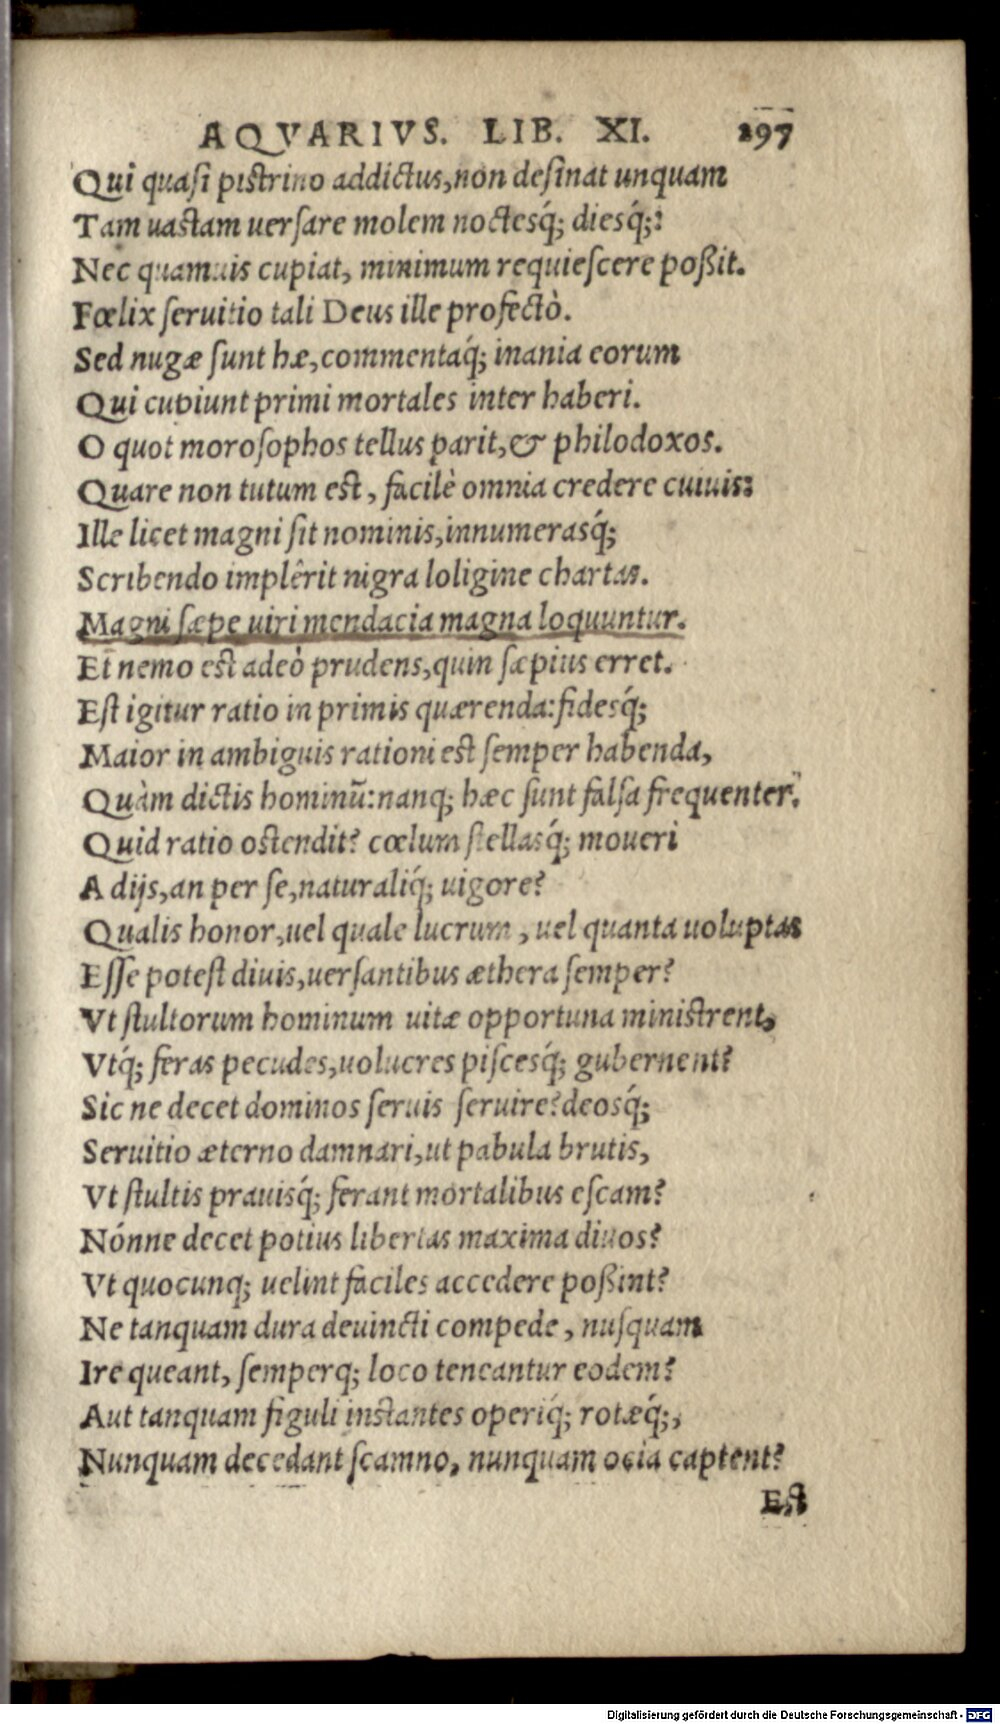 AQVARIVS. LIB. XI. 297
Qui quasi pistrino addictus, non desinat unquam
Tam uastam uersare molem noctesq́; diesq́;?
Nec quamuis cupiat, minimum requiescere poßit.
Fœlix seruitio tali Deus ille profectò.
Sed nugæ sunt hæ, commentaq́; inania eorum
Qui cupiunt primi mortales inter haberi.
O quot morosophos tellus parit, & philodoxos.
Quare non tutum est, facilè omnia credere cuiuis:
Ille licet magni sit nominis, innumerasq́;
Scribendo implêrit nigra loligine chartas.
Magni sæpe uiri mendacia magna loquuntur.
Et nemo est adeò prudens, quin sæpius erret.
Est igitur ratio in primis quærenda: fidesq́;
Maior in ambiguis rationi est semper habenda,
Quàm dictis hominũ: nanq; hæc sunt falsa frequenter.
Quid ratio ostendit? cœlum stellasq́; moueri
A dijs, an per se, naturaliq́; uigore?
Qualis honor, uel quale lucrum, uel quanta uoluptas
Esse potest diuis, uersantibus æthera semper?
Vt stultorum hominum uitæ opportuna ministrent,
Vtq́; feras pecudes, uolucres piscesq́; gubernent?
Sic ne decet dominos seruis seruire? deosq́;
Seruitio æterno damnari, ut pabula brutis,
Vt stultis prauisq́; ferant mortalibus escam?
Nónne decet potius libertas maxima diuos?
Vt quocunq; uelint faciles accedere poßint?
Ne tanquam dura deuincti compede, nusquam
Ire queant, semperq; loco teneantur eodem?
Aut tanquam figuli instantes operiq́; rotæq́;,
Nunquam decedant scamno, nunquam ocia captent?
Est
Digitalisierung gefördert durch die Deutsche Forschungsgemeinschaft - DFG